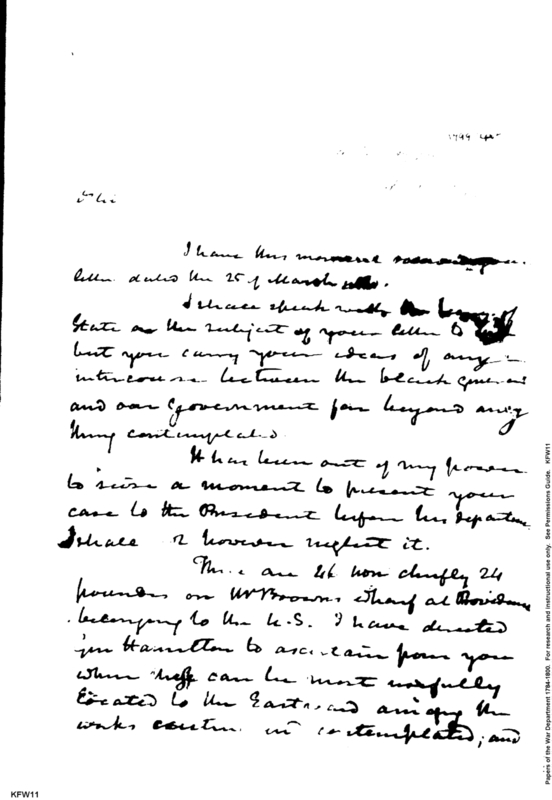 1799
I have this moment
letter dated the 25 of March
I shall speak with the of
State on the subject of your letter to
but you carry your ideas of any
intercourse between the black general
and our Government far beyond any
thing contemplated.
It has been out of my power
to seize a moment to present your
case to the President before his departure
I shall not however neglect it.
There are 46 Iron chiefly 24
pounders on Mr Browns wharf at Providence
belonging to the U.S. I have directed
Hamilton to ascertain from you
where they can be most usefully
located to the Eastward among the
works contemplated, and
KFW11
Papers of the War Department 1784-1800. For research and instructional use only. See Permissions Guide. KFW11